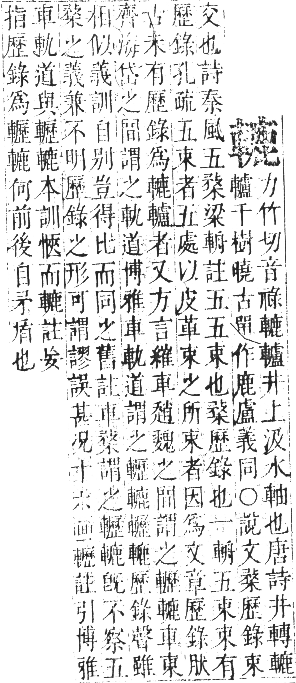 轆
力竹切音祿轆轤井上汲水軸也唐詩井轉轆
轤千樹曉古單作鹿盧義同○說文楘歷錄束
交也詩秦風五楘梁輈註五五束也楘歷錄也一輈五束束有
歷錄孔疏五束者五處以皮革束之所束者因為文章歷錄狀
古來有歷錄為轆轤者又方言維車趙魏之間謂之轣轆車東
齊海岱之間謂之軌道博雅車軌道謂之轣轆轣轆歷錄聲雖
相似義訓自别豈得比而同之舊註車楘謂之轣轆旣不察五
楘之義兼不明歷錄之形可謂謬誤甚况十六畫轣註引博雅
車軌道與轣轆本訓愜而轆註妄
指歷錄為轣轆何前後自矛盾也